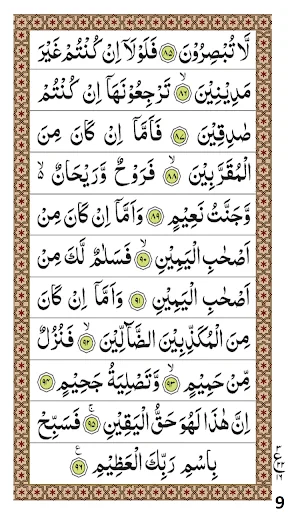 لَّا تُبْصِرُوْنَ ﴿۸۵﴾ فَلَوْلَاۤ اِنْ كُنْتُمْ غَيْرَ
مَدِيْنِيْنَ ۙ﴿۸۶﴾ تَرْجِعُوْنَهَاۤ اِنْ كُنْتُمْ
صٰدِقِيْنَ ﴿۸۷﴾ فَاَمَّاۤ اِنْ كَانَ مِنَ
الْمُقَرَّبِيْنَ ۙ﴿۸۸﴾ فَرَوْحٌ وَّرَيْحَانٌ ۙ۬
وَّجَنَّتُ نَعِيْمٍ ﴿۸۹﴾ وَاَمَّاۤ اِنْ كَانَ مِنْ
اَصْحٰبِ الْيَمِيْنِ ۙ﴿۹۰﴾ فَسَلٰمٌ لَّكَ مِنْ
اَصْحٰبِ الْيَمِيْنِ ﴿۹۱﴾ وَاَمَّاۤ اِنْ كَانَ
مِنَ الْمُكَذِّبِيْنَ الضَّآلِّيْنَ ۙ﴿۹۲﴾ فَنُزُلٌ
مِّنْ حَمِيْمٍ ۙ﴿۹۳﴾ وَّتَصْلِيَةُ جَحِيْمٍ ﴿۹۴﴾
اِنَّ هٰذَا لَهُوَ حَقُّ الْيَقِيْنِ ۚ﴿۹۵﴾ فَسَبِّحْ
بِاسْمِ رَبِّكَ الْعَظِيْمِ ۠﴿۹۶﴾
9